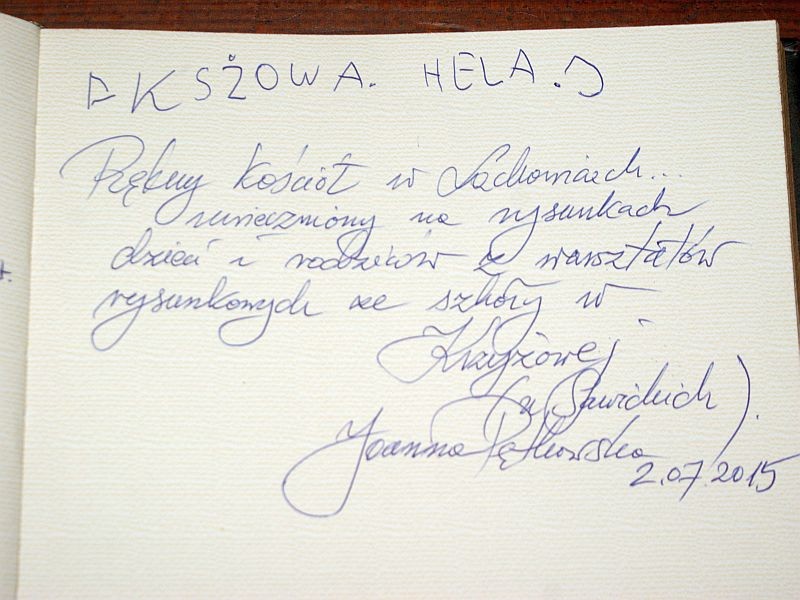 KSŻOWA. HELA.J
Piękny kościół w Lachowicach...
uwieczniony na rysunkach
dzieci i rodziców z warsztatów
rysunkowych ze szkoły w
Krzyżowej
(u Sawickich).
Joanna Pątkowska
2.07.2015